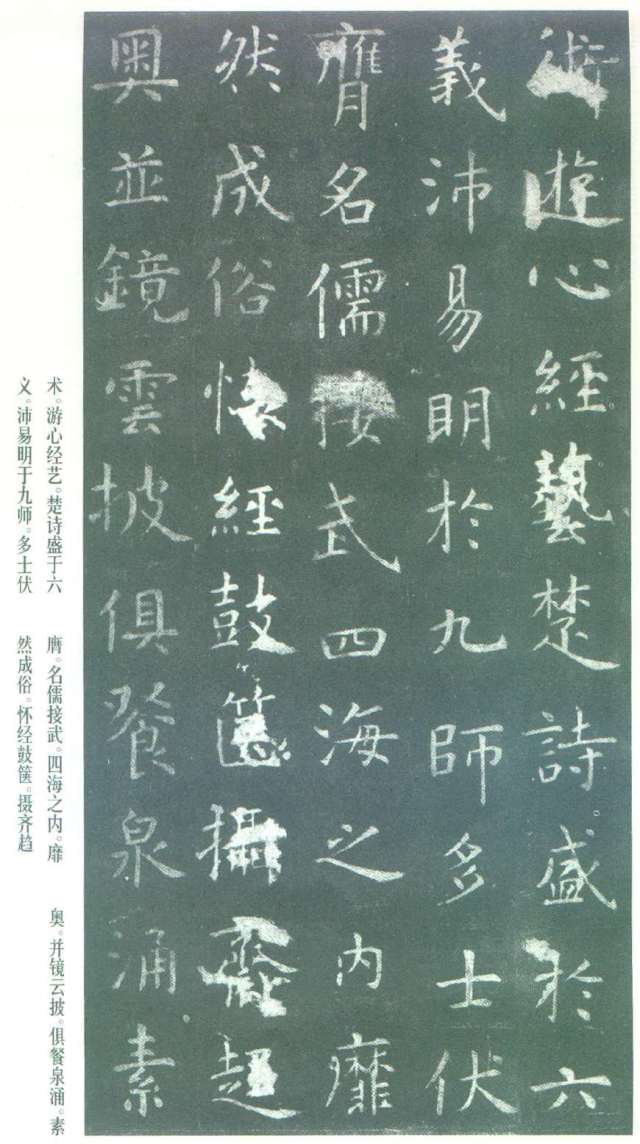 術遊心經藝楚詩盛於六
義沛易明於九師多士伏
膺名儒接武四海之内靡
然成俗懷經鼓篋攝齊趍
奥並鏡雲披俱餐泉涌素
术。游心经艺。楚诗盛于六
义。沛易明于九师。多士伏
膺。名儒接武。四海之内。靡
然成俗。怀经鼓箧。摄齐趋
奥。并镜云披。俱餐泉涌。素